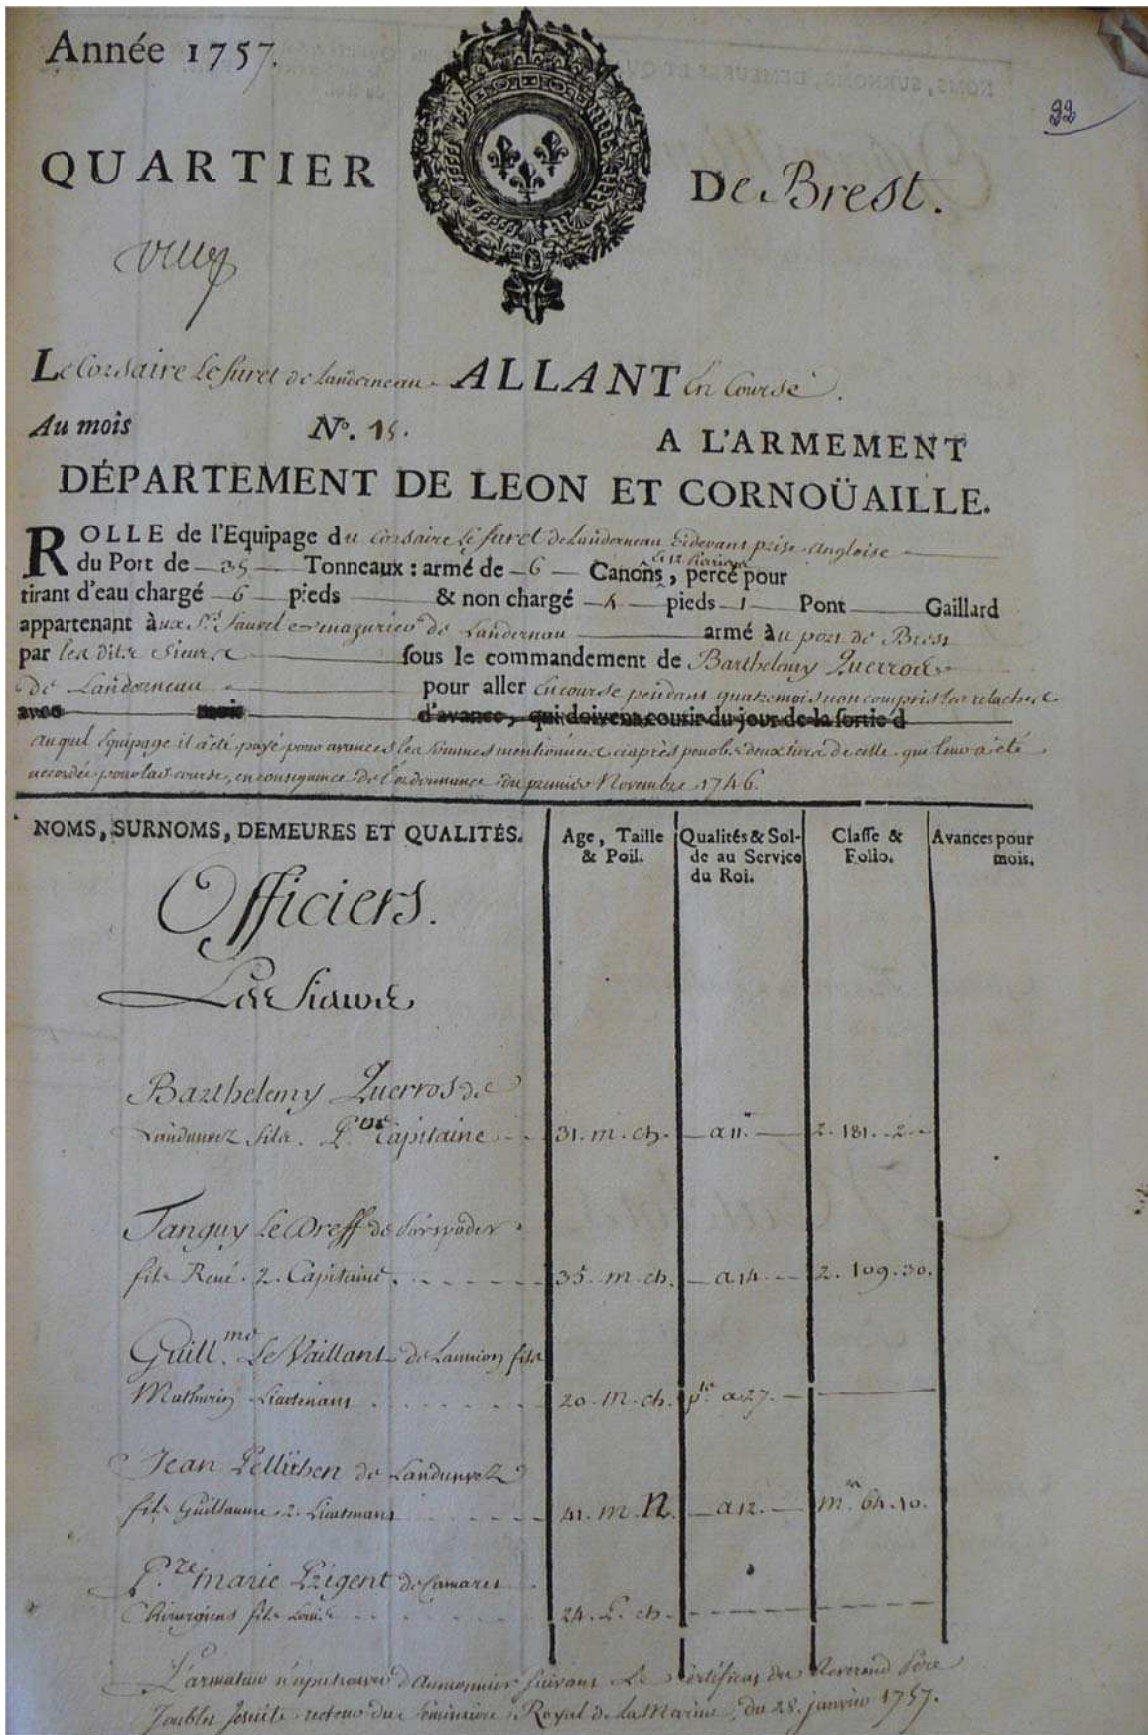 Année 1757.
22
QUARTIER De Brest.
Le Corsaire Le furet de Landerneau ALLANT En Course.
Au mois N°. 15. A L'ARMEMENT
DÉPARTEMENT DE LEON ET CORNOÜAILLE.
ROLLE de l'Equipage du Corsaire Le furet de Landerneau cidevant prise angloise
et 12 Pierriers
du Port de 35 Tonneaux : armé de 6 Canons, percé pour
tirant d'eau chargé 6 pieds & non chargé 4 pieds 1 Pont Gaillard
appartenant à ux Srs Sauvel e mazurié de Landernau armé à u port de Brest
par les dits Sieurs sous le commandement de Barthelemy Querros
de Landerneau pour aller En course pendant quatre mois non compris les relaches
avec mois d'avance, qui doivent courir du jour de la sortie d
auquel Equipage il a été payé pour avances les sommes mentionnées ciaprès pour les deux tiers de celle qui leur a été
accordée pour lad. course, en consequence de l'ordonnance du premier Novembre 1746.
NOMS, SURNOMS, DEMEURES ET QUALITÉS. Age, Taille & Poil. Qualités & Solde au Service du Roi. Classe & Folio. Avances pour mois.
Officiers.
Les Sieurs
Barthelemy Querros de
Landunvez fils. Capitaine 31. m. ch. a 11. 2. 181. 2.
Tanguy Le Dreff de Porspoder
fils René. 2. Capitaine. 35. m. ch. a 14. 2. 109. 30.
Guill.me Le Vaillant de Lannion fils
Mathurin Lieutenant 20. m. ch. pte a 27.
Jean Pellichen de Landunvez
fils Guillaume. 2. Lieutenant 41. m. N. a 12. m. 64. 10.
P.re marie Prigent de Camaret
Chirurgiens fils Louis 24. P. ch.
L'armateur n'a pu trouver d'Aumonnier suivant Le Certificat du Reverend Père
Jesuite recteur du Seminaire Royal de la Marine, du 28. janvier 1757.